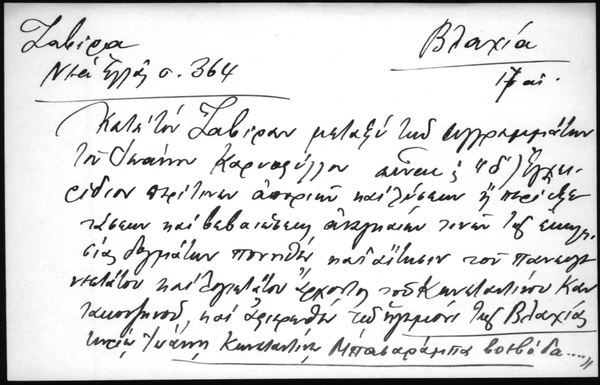 Ζαβίρα
Νέα Ἑλλὰς σ. 364
Βλαχία
17 αἰ.
Κατὰ τὸν Ζαβίραν μεταξὺ τῶν συγγραμμάτων
τοῦ Ἰωάννου Καρυοφύλλου εἶναι "δ) Ἐγχει-
ρίδιον περί τινων ἀποριῶν καὶ λύσεων ἢ περὶ ἐξε-
τάσεως καὶ βεβαιώσεως ἀναγκαίων τινῶν τῆς ἐκκλη-
σίας δογμάτων πονηθὲν κατ' αἴτησιν τοῦ πανευγ-
ενεστάτου καὶ λογιωτάτου ἄρχοντος τοῦ Κωνσταντίνου Καν-
τακουζηνοῦ, καὶ ἀφιερωθὲν τῷ ἡγεμόνι τῆς Βλαχίας
κυρίῳ Ἰωάννῃ Κωνσταντίνῳ Μπασαράμπα βοεβόδα....."